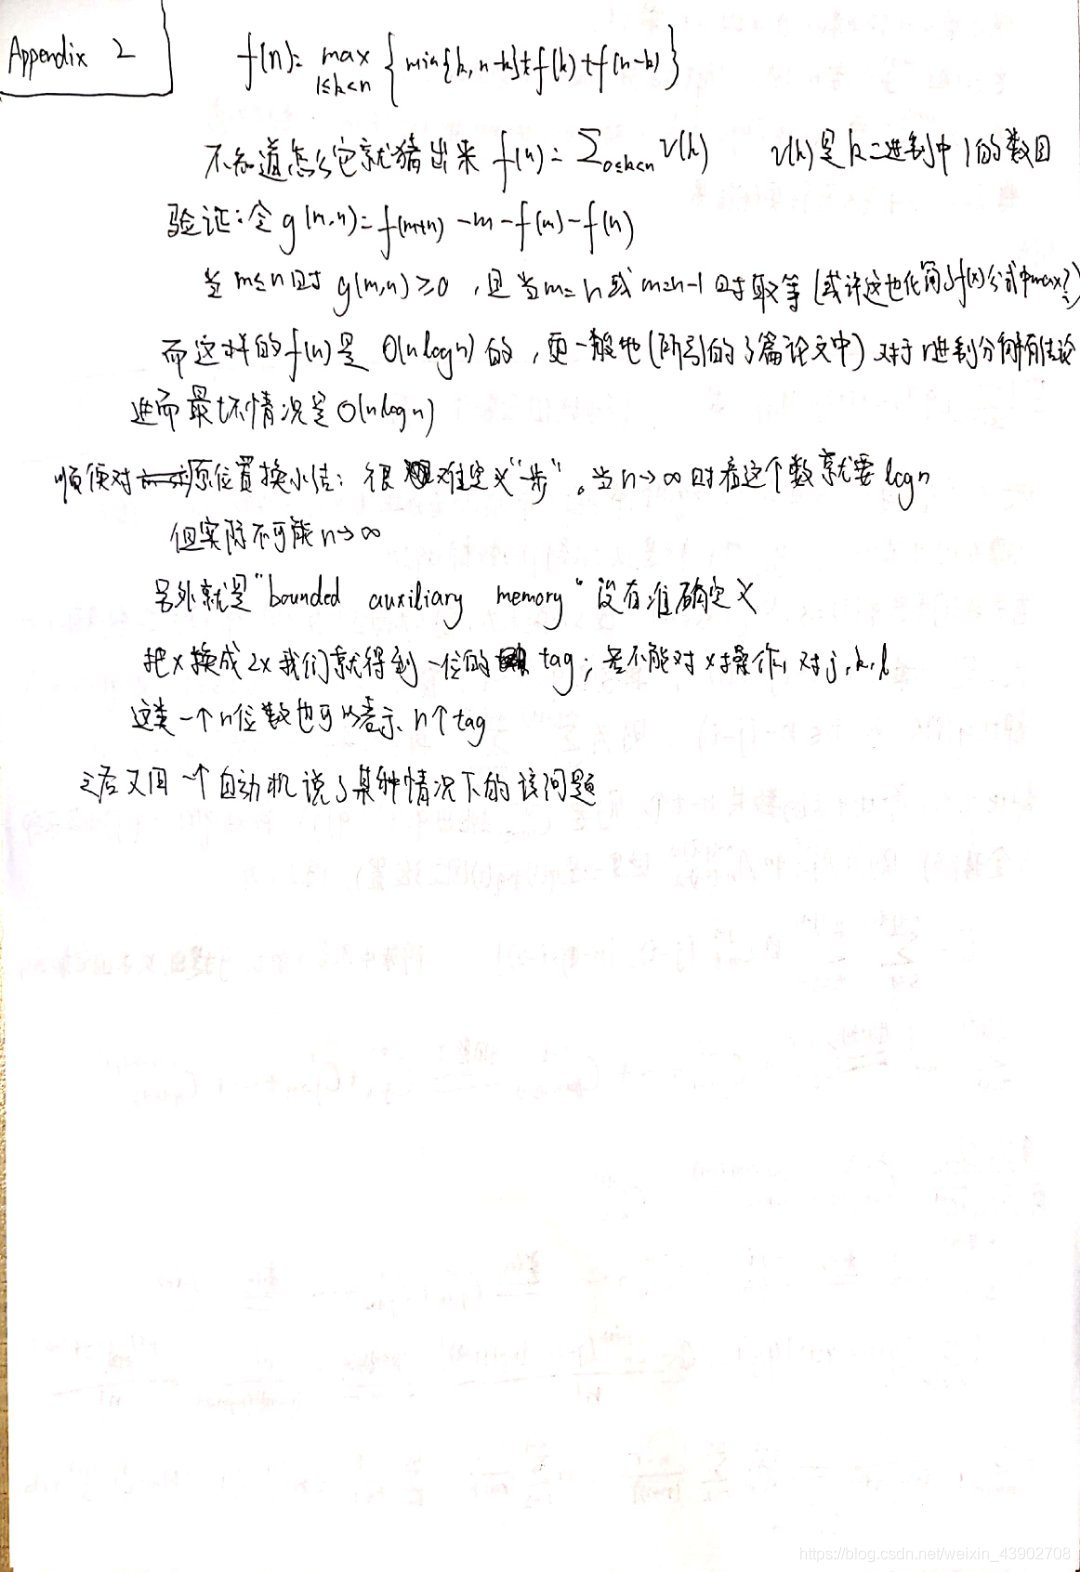 Appendix 2
f(n) = max 1≤k<n { min{k, n-k} + f(k) + f(n-k) }
不知道怎么它就猜出来 f(n) = ∑0≤k<n ν(k) ν(k)是k二进制中1的数目
验证:令 g(m,n) = f(m+n) - m - f(m) - f(n)
当 m≤n 时 g(m,n) ≥0 ,且当m=n或m=n-1时取等 (或许这也化简了f(x)公式中max?)
而这样的f(n)是 O(n log n) 的 ,更一般地(所引的3篇论文中) 对于r进制分析有结论
进而最坏情况是 O(n log n)
顺便对原位置换小结: 很难定义"一步"。当n→∞时看这个数就要 log n
但实际不可能 n→∞
另外就是"bounded auxiliary memory"没有准确定义
把x换成2x我们就得到一位的 tag; 若不能对x操作, 对j,k,l
这类一个n位数也可以表示n个tag
之后又用一个自动机说了某种情况下的该问题
https://blog.csdn.net/weixin_43902708